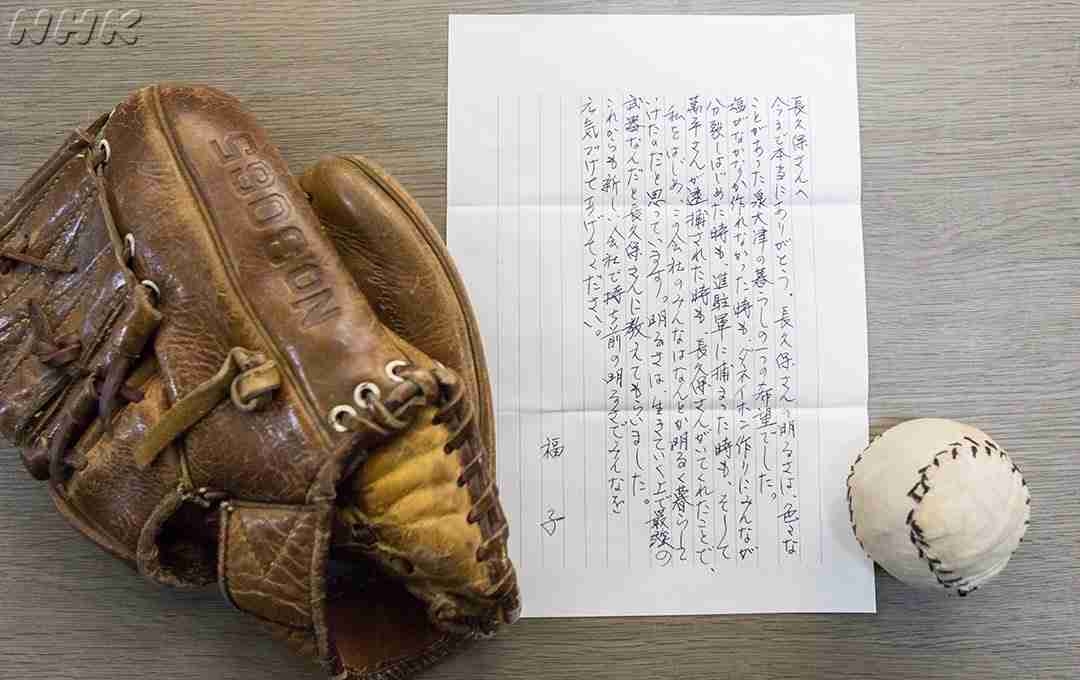 NHK
No8065
長久保さんへ
今まで本当にありがとう。長久保さんの明るさは、色々な
ことがあった泉大津の暮らしの一つの希望でした。
塩がなかなか作れなかった時も、ダネイホン作りにみんなが
分裂しはじめた時も、進駐軍に捕まった時も、そして
萬平さんが逮捕された時も、長久保さんがいてくれたことで、
私をはじめ、この会社のみんなはなんとか明るく暮らして
いけたのだと思っています。明るさは生きていく上で最強の
武器なんだと長久保さんに教えてもらいました。
これからも新しい会社で持ち前の明るさでみんなを
元気づけてあげてください。
福子